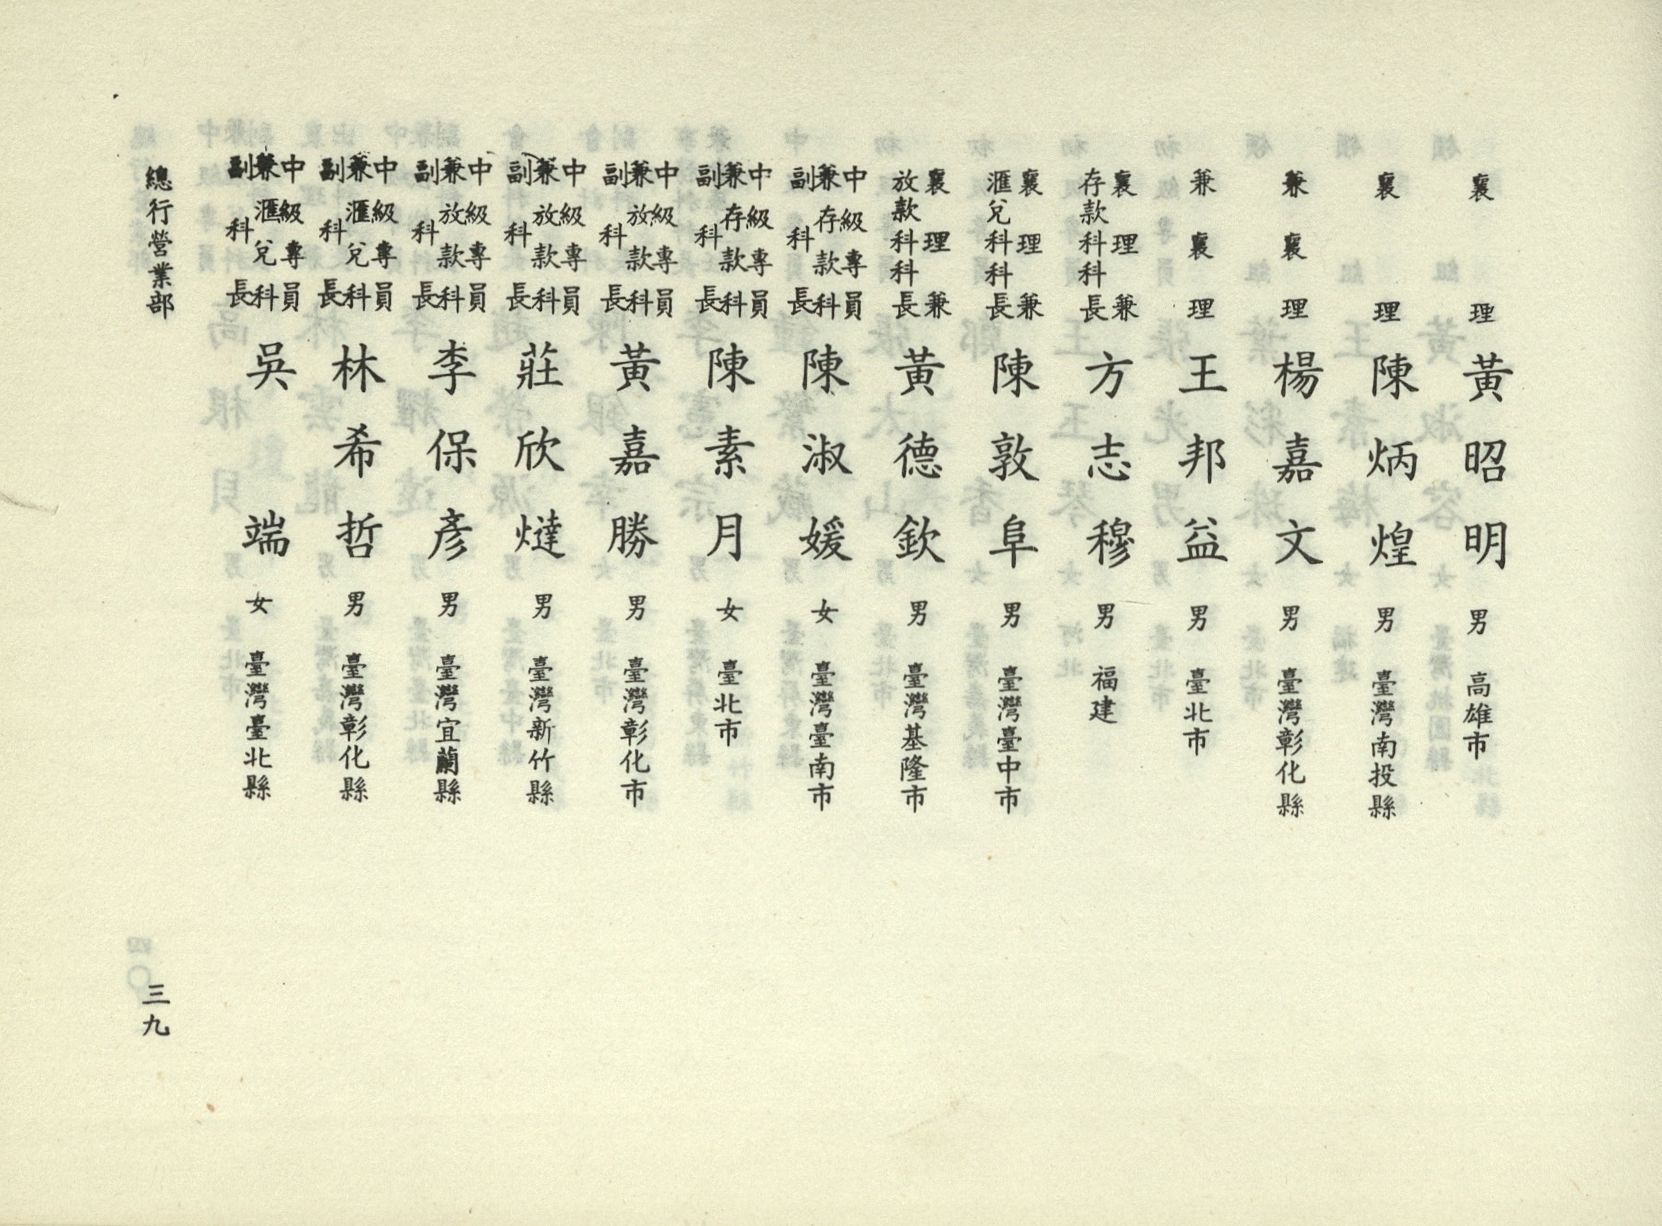 襄理 黃昭明 男 高雄市
襄理 陳炳煌 男 臺灣南投縣
兼襄理 楊嘉文 男 臺灣彰化縣
兼襄理 王邦益 男 臺北市
襄理兼存款科科長 方志穆 男 福建
襄理兼滙兌科科長 陳敦阜 男 臺灣臺中市
襄理兼放款科科長 黃德欽 男 臺灣基隆市
中級專員兼存款科副科長 陳淑媛 女 臺灣臺南市
中級專員兼存款科副科長 陳素月 女 臺北市
中級專員兼放款科副科長 黃嘉勝 男 臺灣彰化市
中級專員兼放款科副科長 莊欣燵 男 臺灣新竹縣
中級專員兼放款科副科長 李保彥 男 臺灣宜蘭縣
中級專員兼滙兌科副科長 林希哲 男 臺灣彰化縣
中級專員兼滙兌科副科長 吳端 女 臺灣臺北縣
總行營業部 三九